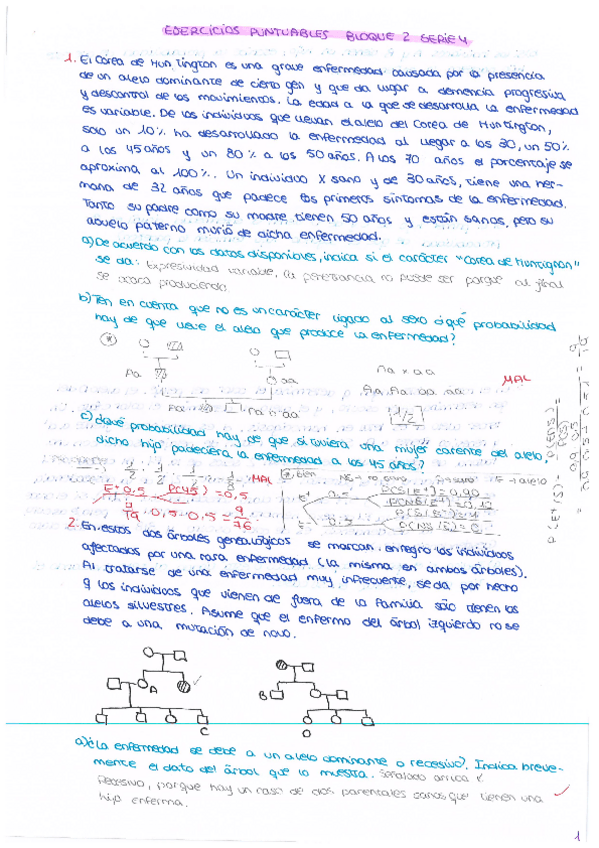 EJERCICIOS PUNTUABLES BLOQUE 2 SERIE 4
1. El Corea de Huntington es una grave enfermedad causada por la presencia
de un alelo dominante de cierto gen y que da lugar a demencia progresiva
y descontrol de los movimientos. La edad a la que se desarrolla la enfermedad
es variable. De los individuos que llevan el alelo del Corea de Huntington,
solo un 10% ha desarrollado la enfermedad al llegar a los 30, un 50%
a los 45 años y un 80% a los 50 años. A los 70 años el porcentaje se
aproxima al 100%. Un individuo X sano y de 30 años, tiene una her-
mana de 32 años que padece los primeros síntomas de la enfermedad.
Tanto su padre como su madre tienen 50 años y están sanos, pero su
abuelo paterno murió de dicha enfermedad.
a) De acuerdo con los datos disponibles, indica si el carácter "Corea de Huntington"
se da: Expresividad variable, la penetrancia no puede ser porque al final
se acaba produciendo
b) Ten en cuenta que no es un carácter ligado al sexo ¿qué probabilidad
hay de que lleve el alelo que produce la enfermedad?
Aa aa
Aa x aa
Aa, Aa aa, aa
1/2
MAL
c) ¿Qué probabilidad hay de que si tuviera una mujer carente del alelo,
dicho hijo padeciera la enfermedad a los 45 años?
MAL
E+ 0,5 P(45) = 0,5
9/19 · 0,5 · 0,5 = 9/76
2. En estos dos árboles genealógicos se marcan en negro los individuos
afectados por una rara enfermedad (la misma en ambos árboles).
Al tratarse de una enfermedad muy infrecuente, se da por hecho
q los individuos que vienen de fuera de la familia sólo tienen los
alelos silvestres. Asume que el enfermo del árbol izquierdo no se
debe a una mutación de novo.
A
B
C
D
a) ¿La enfermedad se debe a un alelo dominante o recesivo?. Indica breve-
mente el dato del árbol que lo muestra. Señalado arriba
Recesivo, porque hay un caso de dos parentales sanos que tienen una
hija enferma.
1